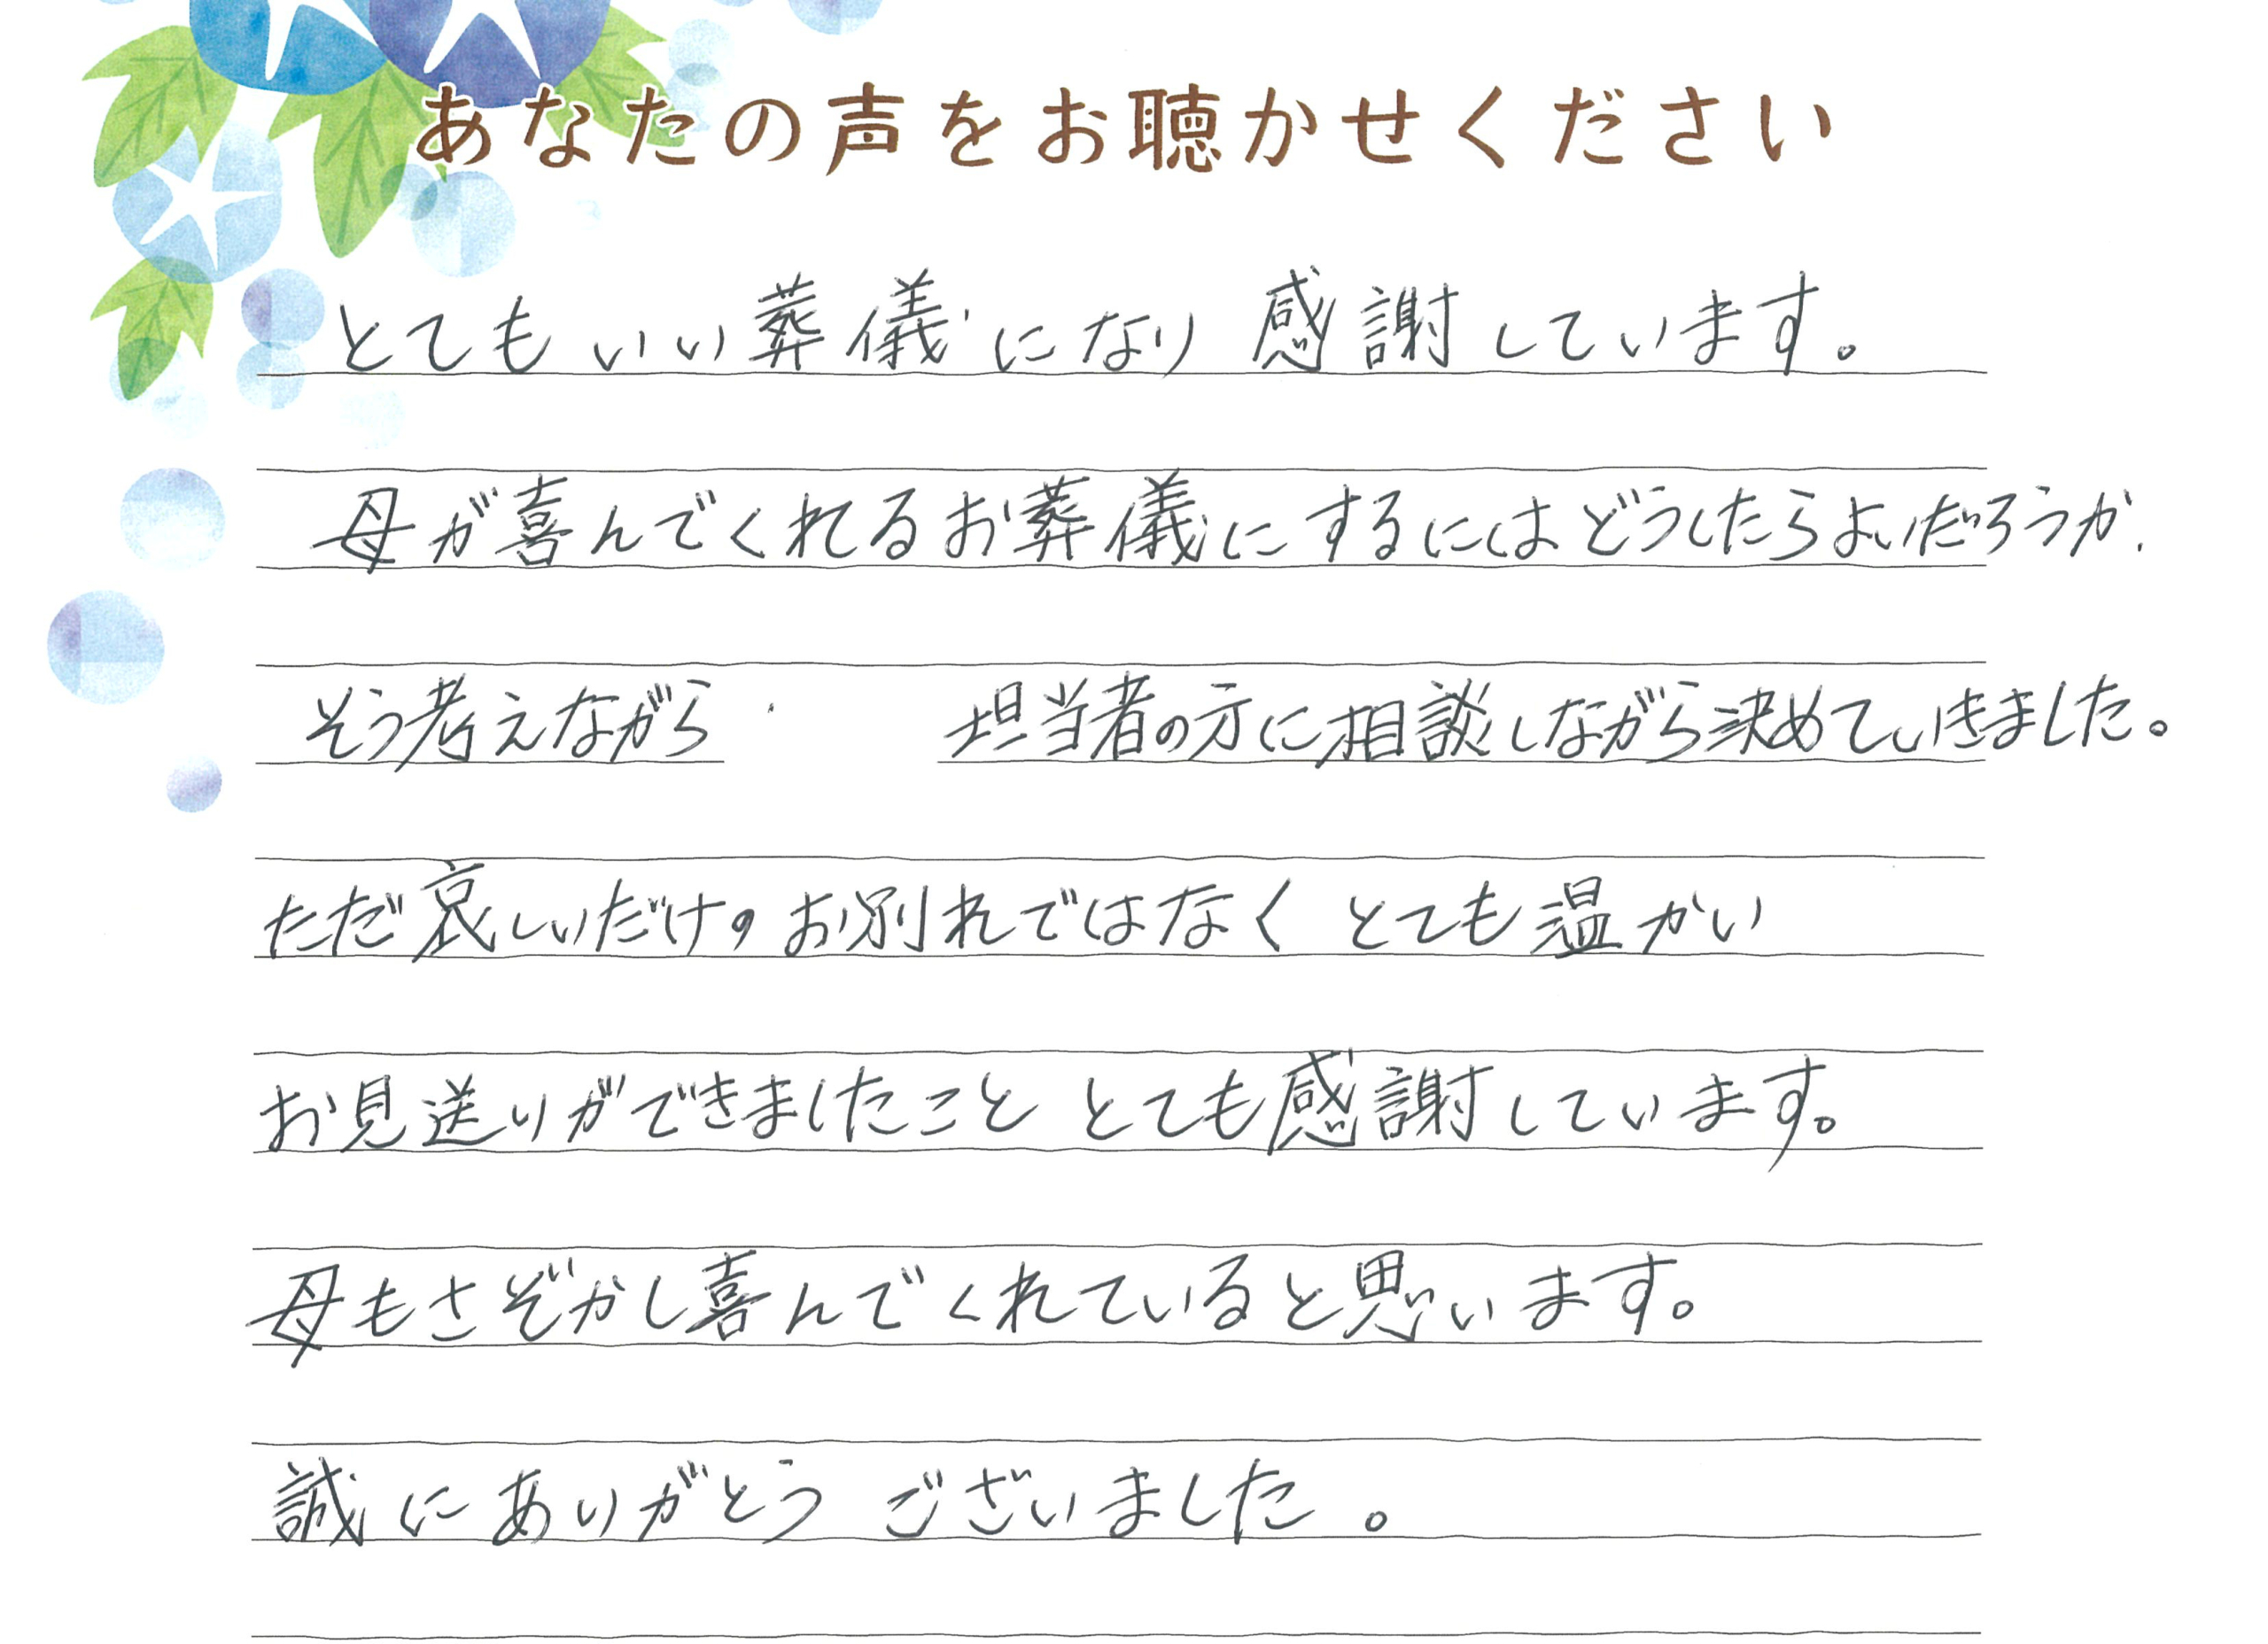 あなたの声をお聴かせください
とてもいい葬儀になり感謝しています。
母が喜んでくれるお葬儀にするにはどうしたらよいだろうか、
そう考えながら 担当者の方に相談しながら決めていきました。
ただ哀しいだけのお別れではなく とても温かい
お見送りができましたこと とても感謝しています。
母もさぞかし喜んでくれていると思います。
誠にありがとう ございました。